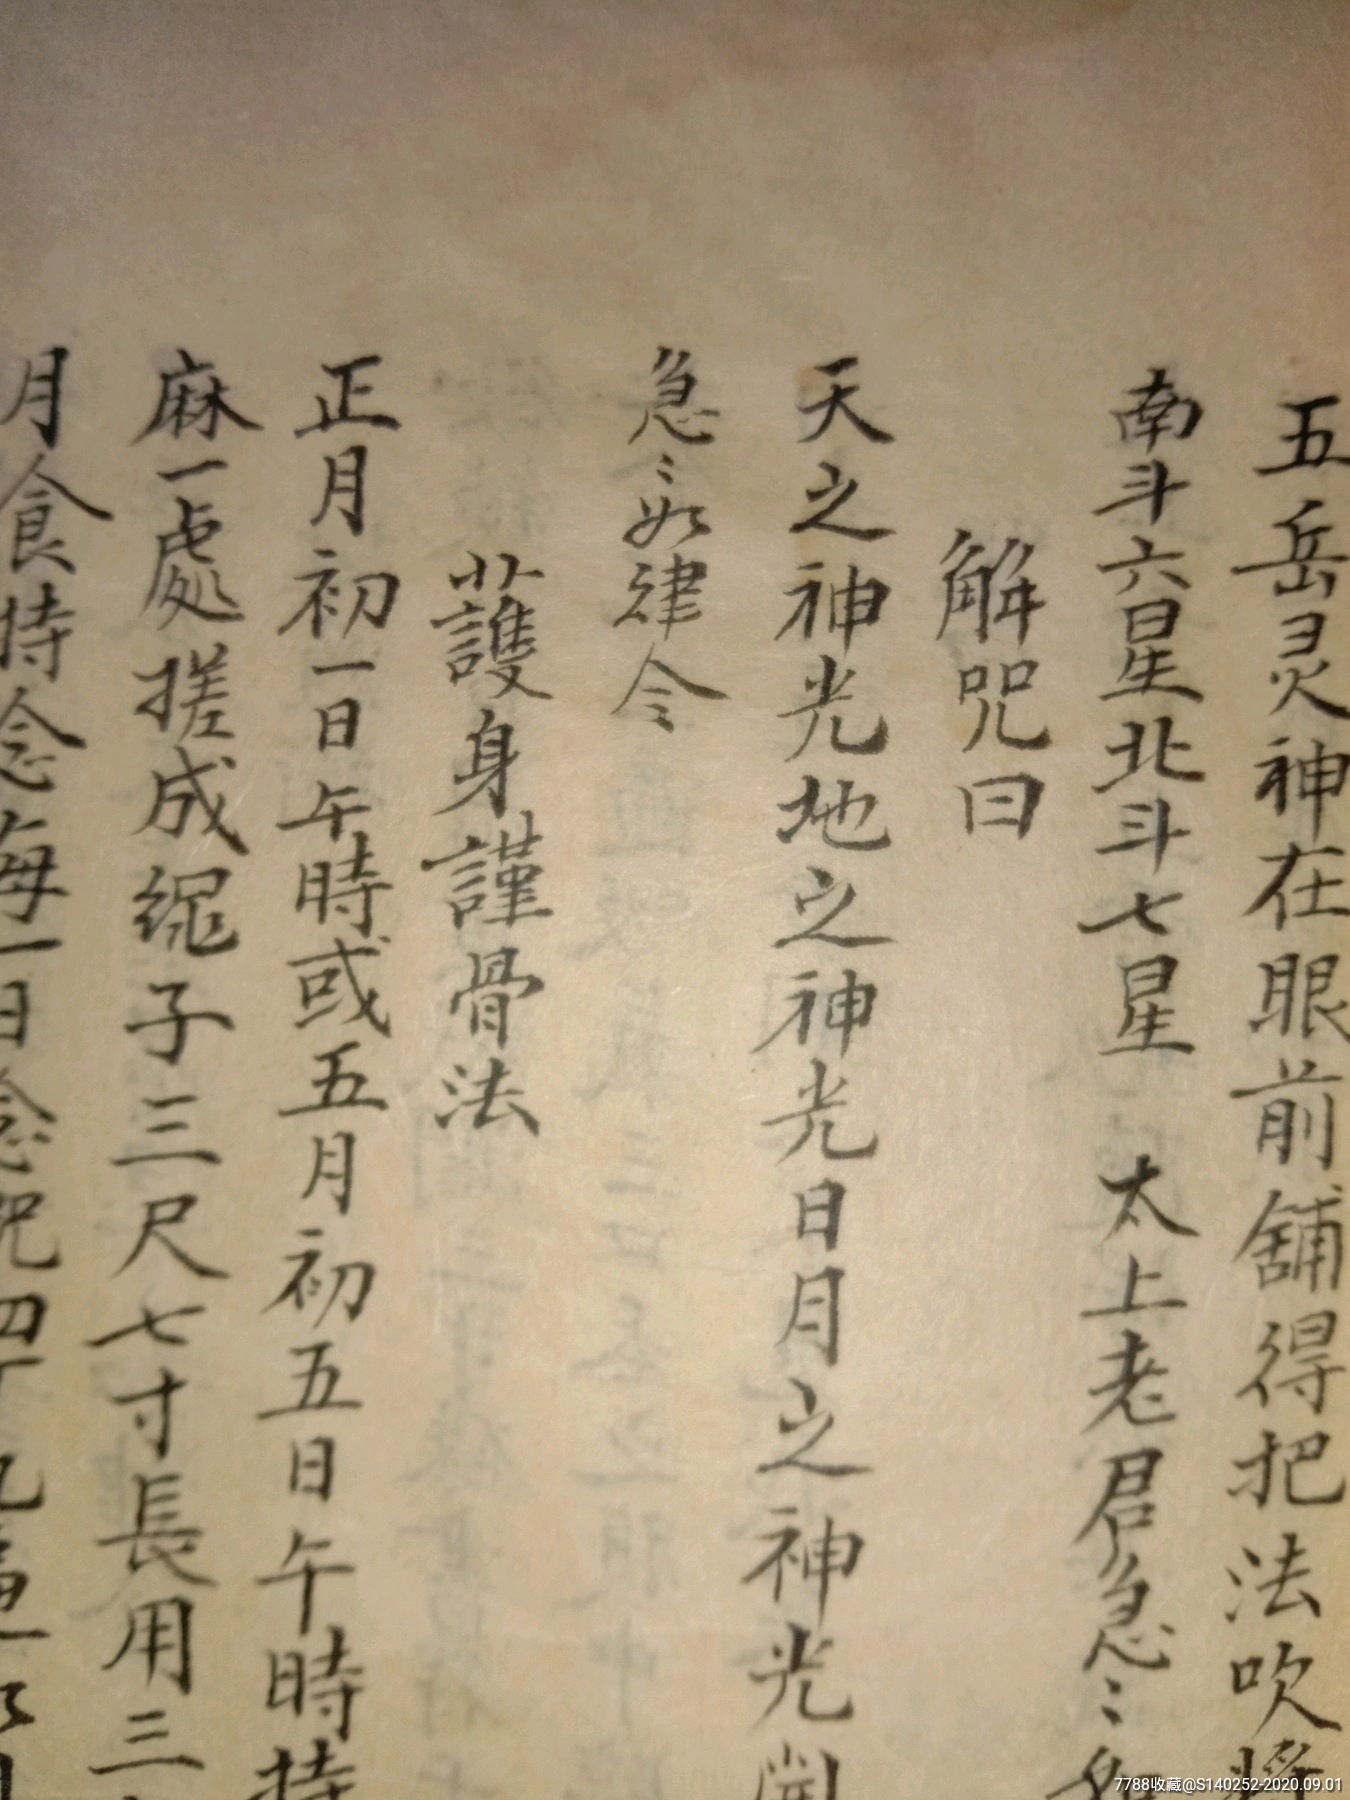 五岳灵神在眼前舖得把法吹將
南斗六星北斗七星 太上老君急〻
解咒曰
天之神光地之神光日月之神光開
急〻如律令
護身謹骨法
正月初一日午時或五月初五日午時持
麻一處搓成繩子三尺七寸長用三
月食時念每一日念咒四十九遍一
7788收藏@S140252-2020.09.01